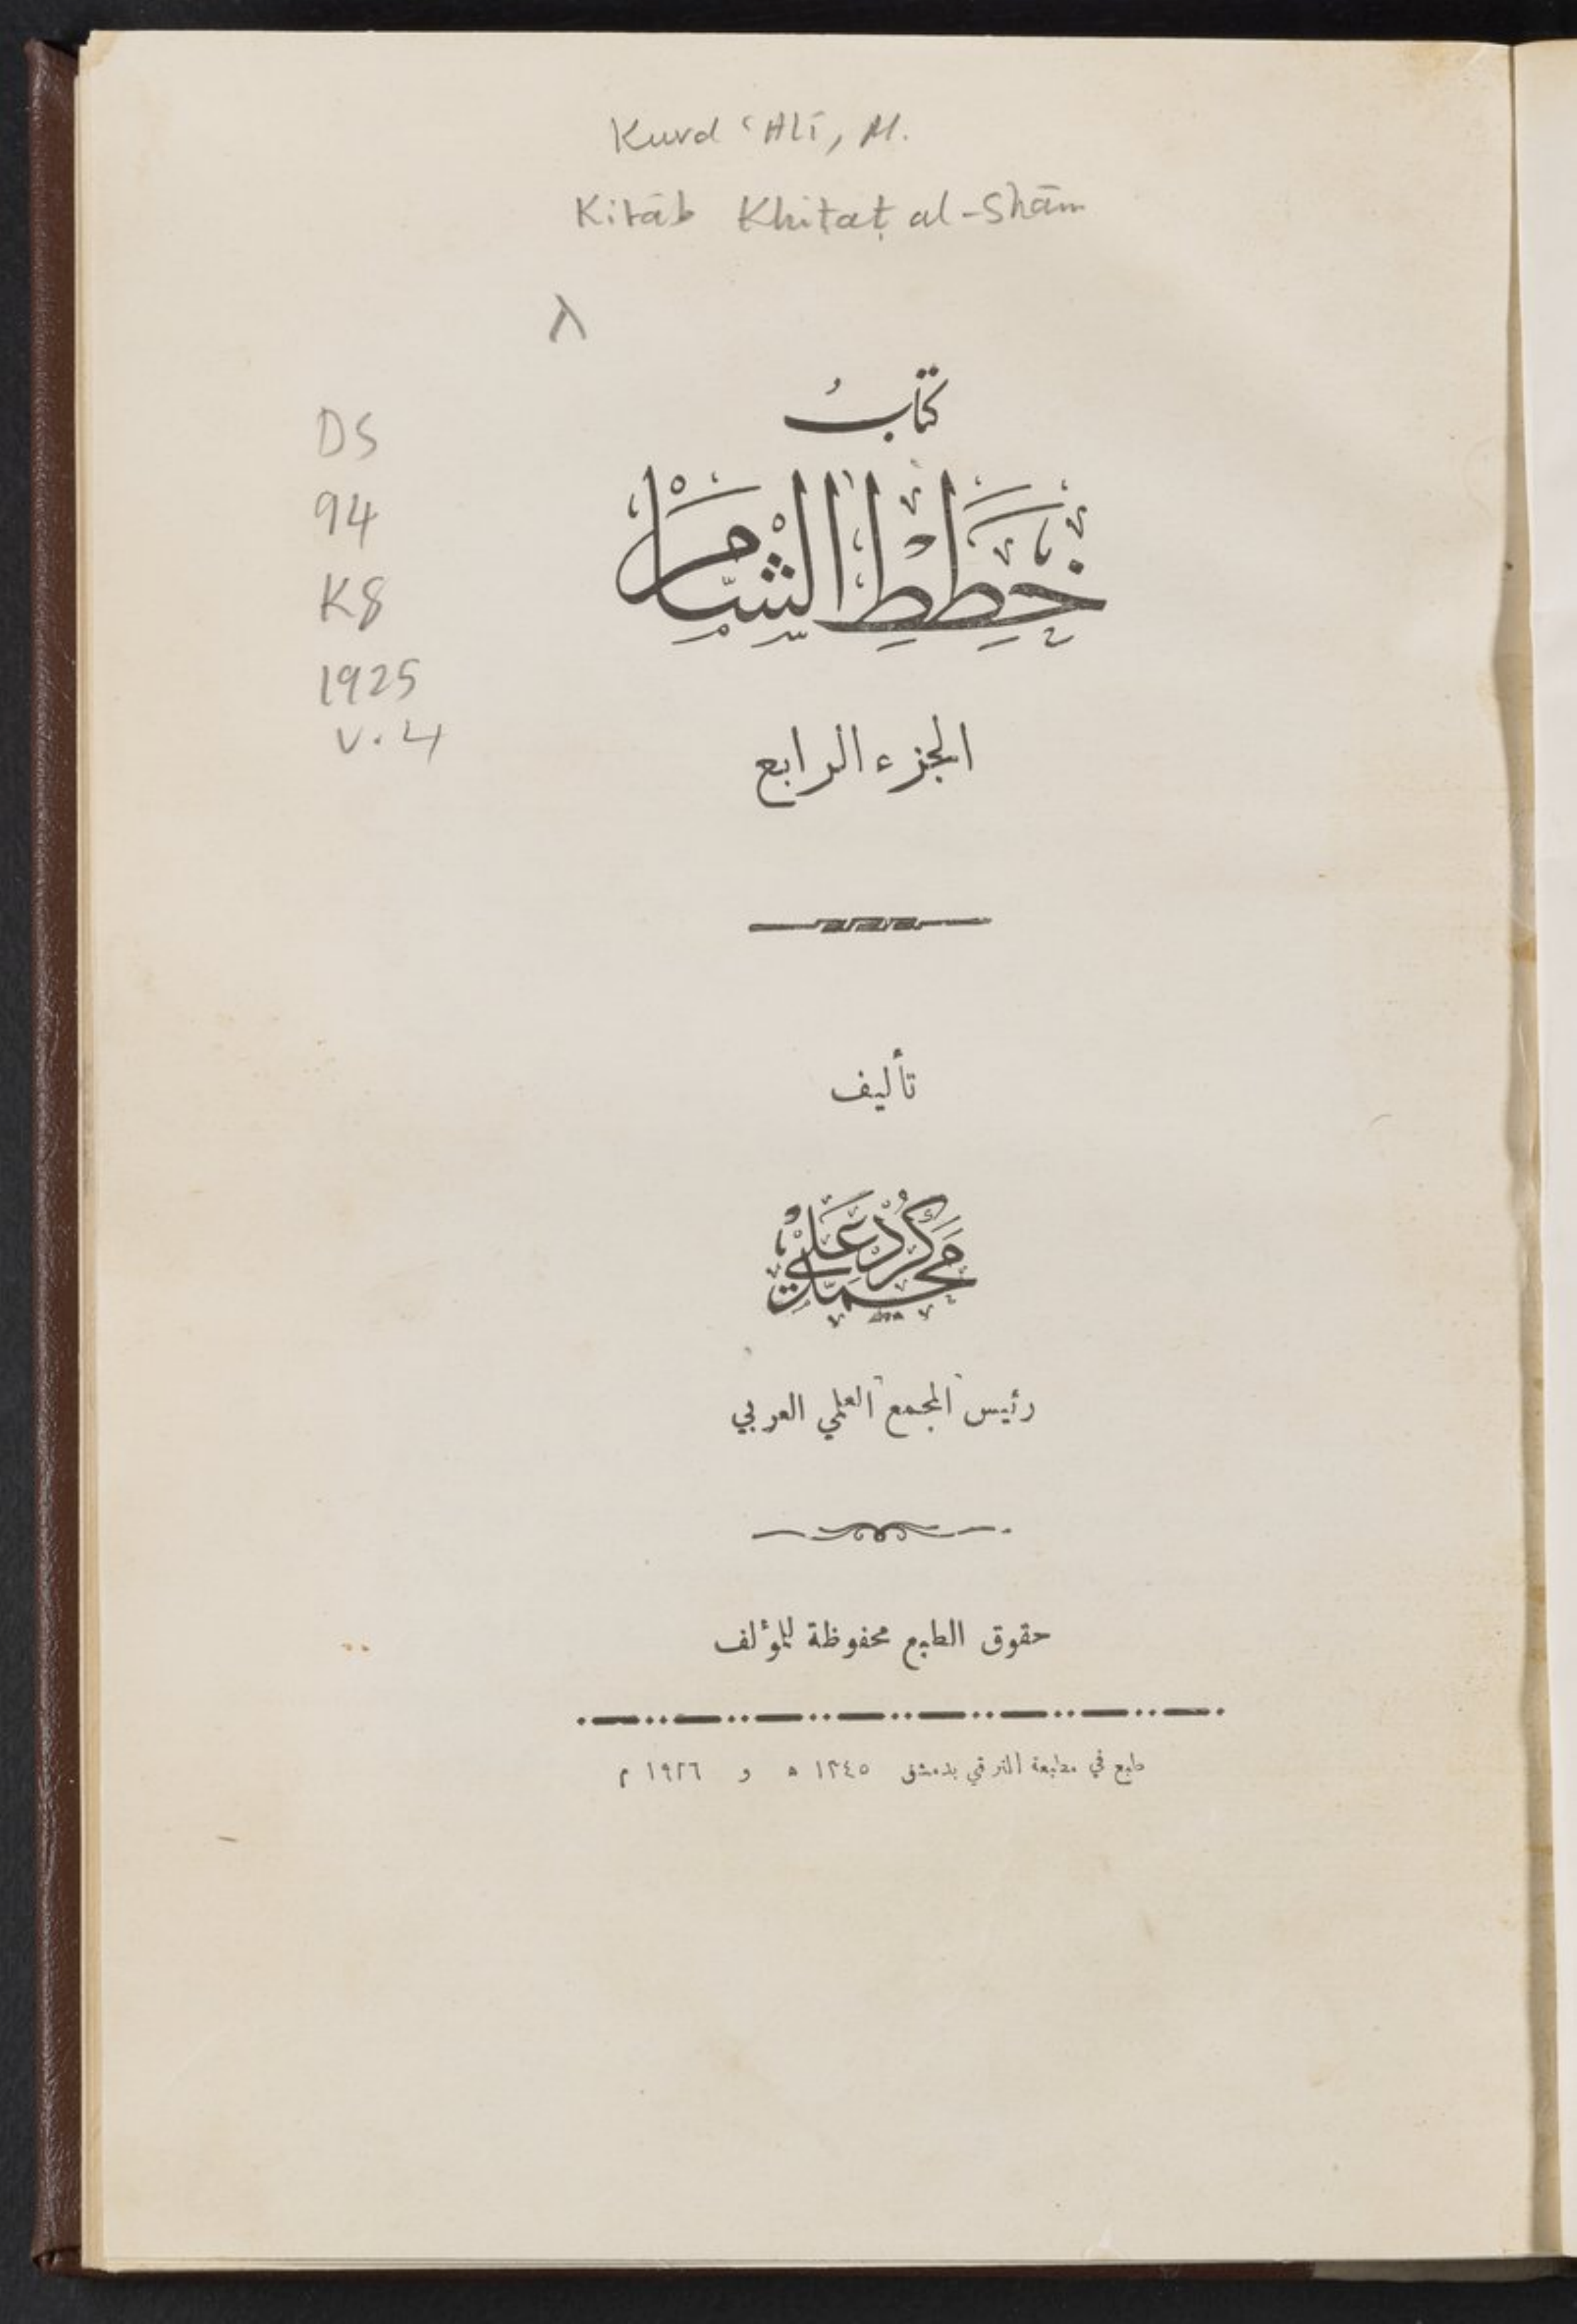 Kurd ʿAlī, M.
Kitāb Khitaṭ al-Shām
DS
94
K8
1925
v.4
كتابُ
خِطَطِ الشَّامِ
الجزء الرابع
تأليف
محمد كرد علي
رئيس المجمع العلمي العربي
حقوق الطبع محفوظة للمؤلف
طبع في مطبعة الترقي بدمشق ١٣٤٥ ه و ١٩٢٦ م